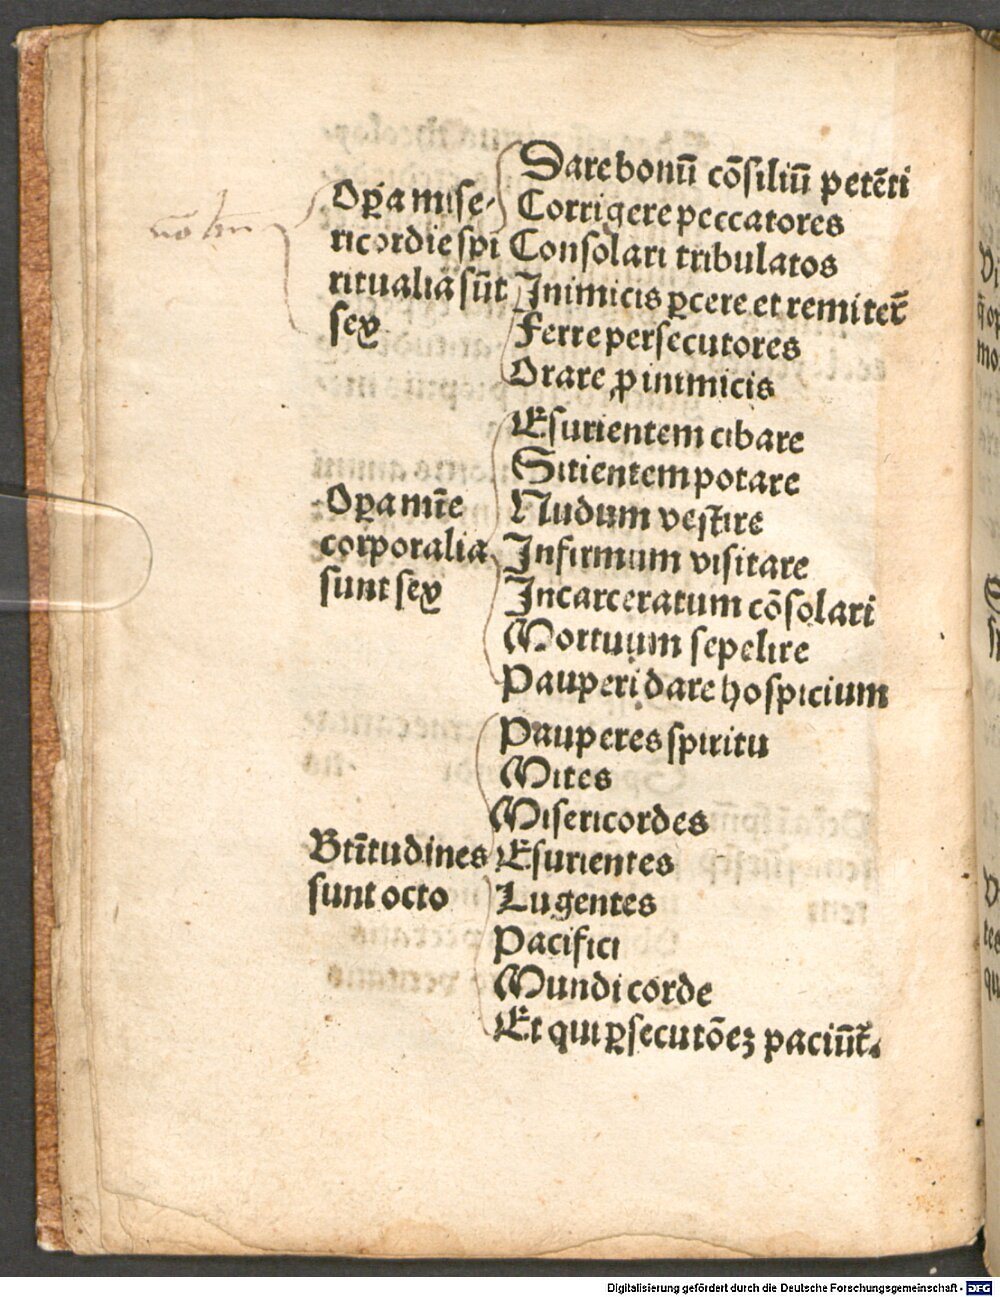 Oꝑa mise-
ricordie spi
ritualia sūt
sex
Dare bonū cōsiliū petēti
Corrigere peccatores
Consolari tribulatos
Inimicis ꝑcere et remitet̄
Ferre persecutores
Orare ꝓ inimicis
Oꝑa mīe
corporalia
sunt sex
Esurientem cibare
Sitientem potare
Nudum vestire
Infirmum visitare
Incarceratum cōsolari
Mortuum sepelire
Pauperi dare hospicium
Btītudines
sunt octo
Pauperes spiritu
Mites
Misericordes
Esurientes
Lugentes
Pacifici
Mundi corde
Et qui ꝑsecutōeꝫ paciūt̄.
Digitalisierung gefördert durch die Deutsche Forschungsgemeinschaft - DFG